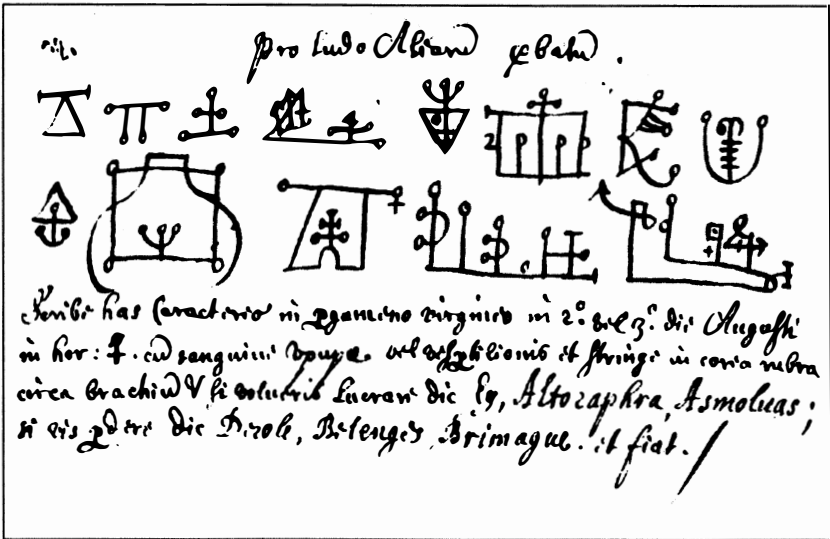 pro ludo
Scribe has Caracteres in pgameno virgineo in 2º vel 3º. die Augusti
in hor: ☿. cū sanguine vel vespertilionis et stringe in coria rubra
circa brachiū si volueris Lucrare dic Ey, Altozaphra, Asmoluas;
si vis pdere dic Dizole, Belenges, Brimague. et fiat.